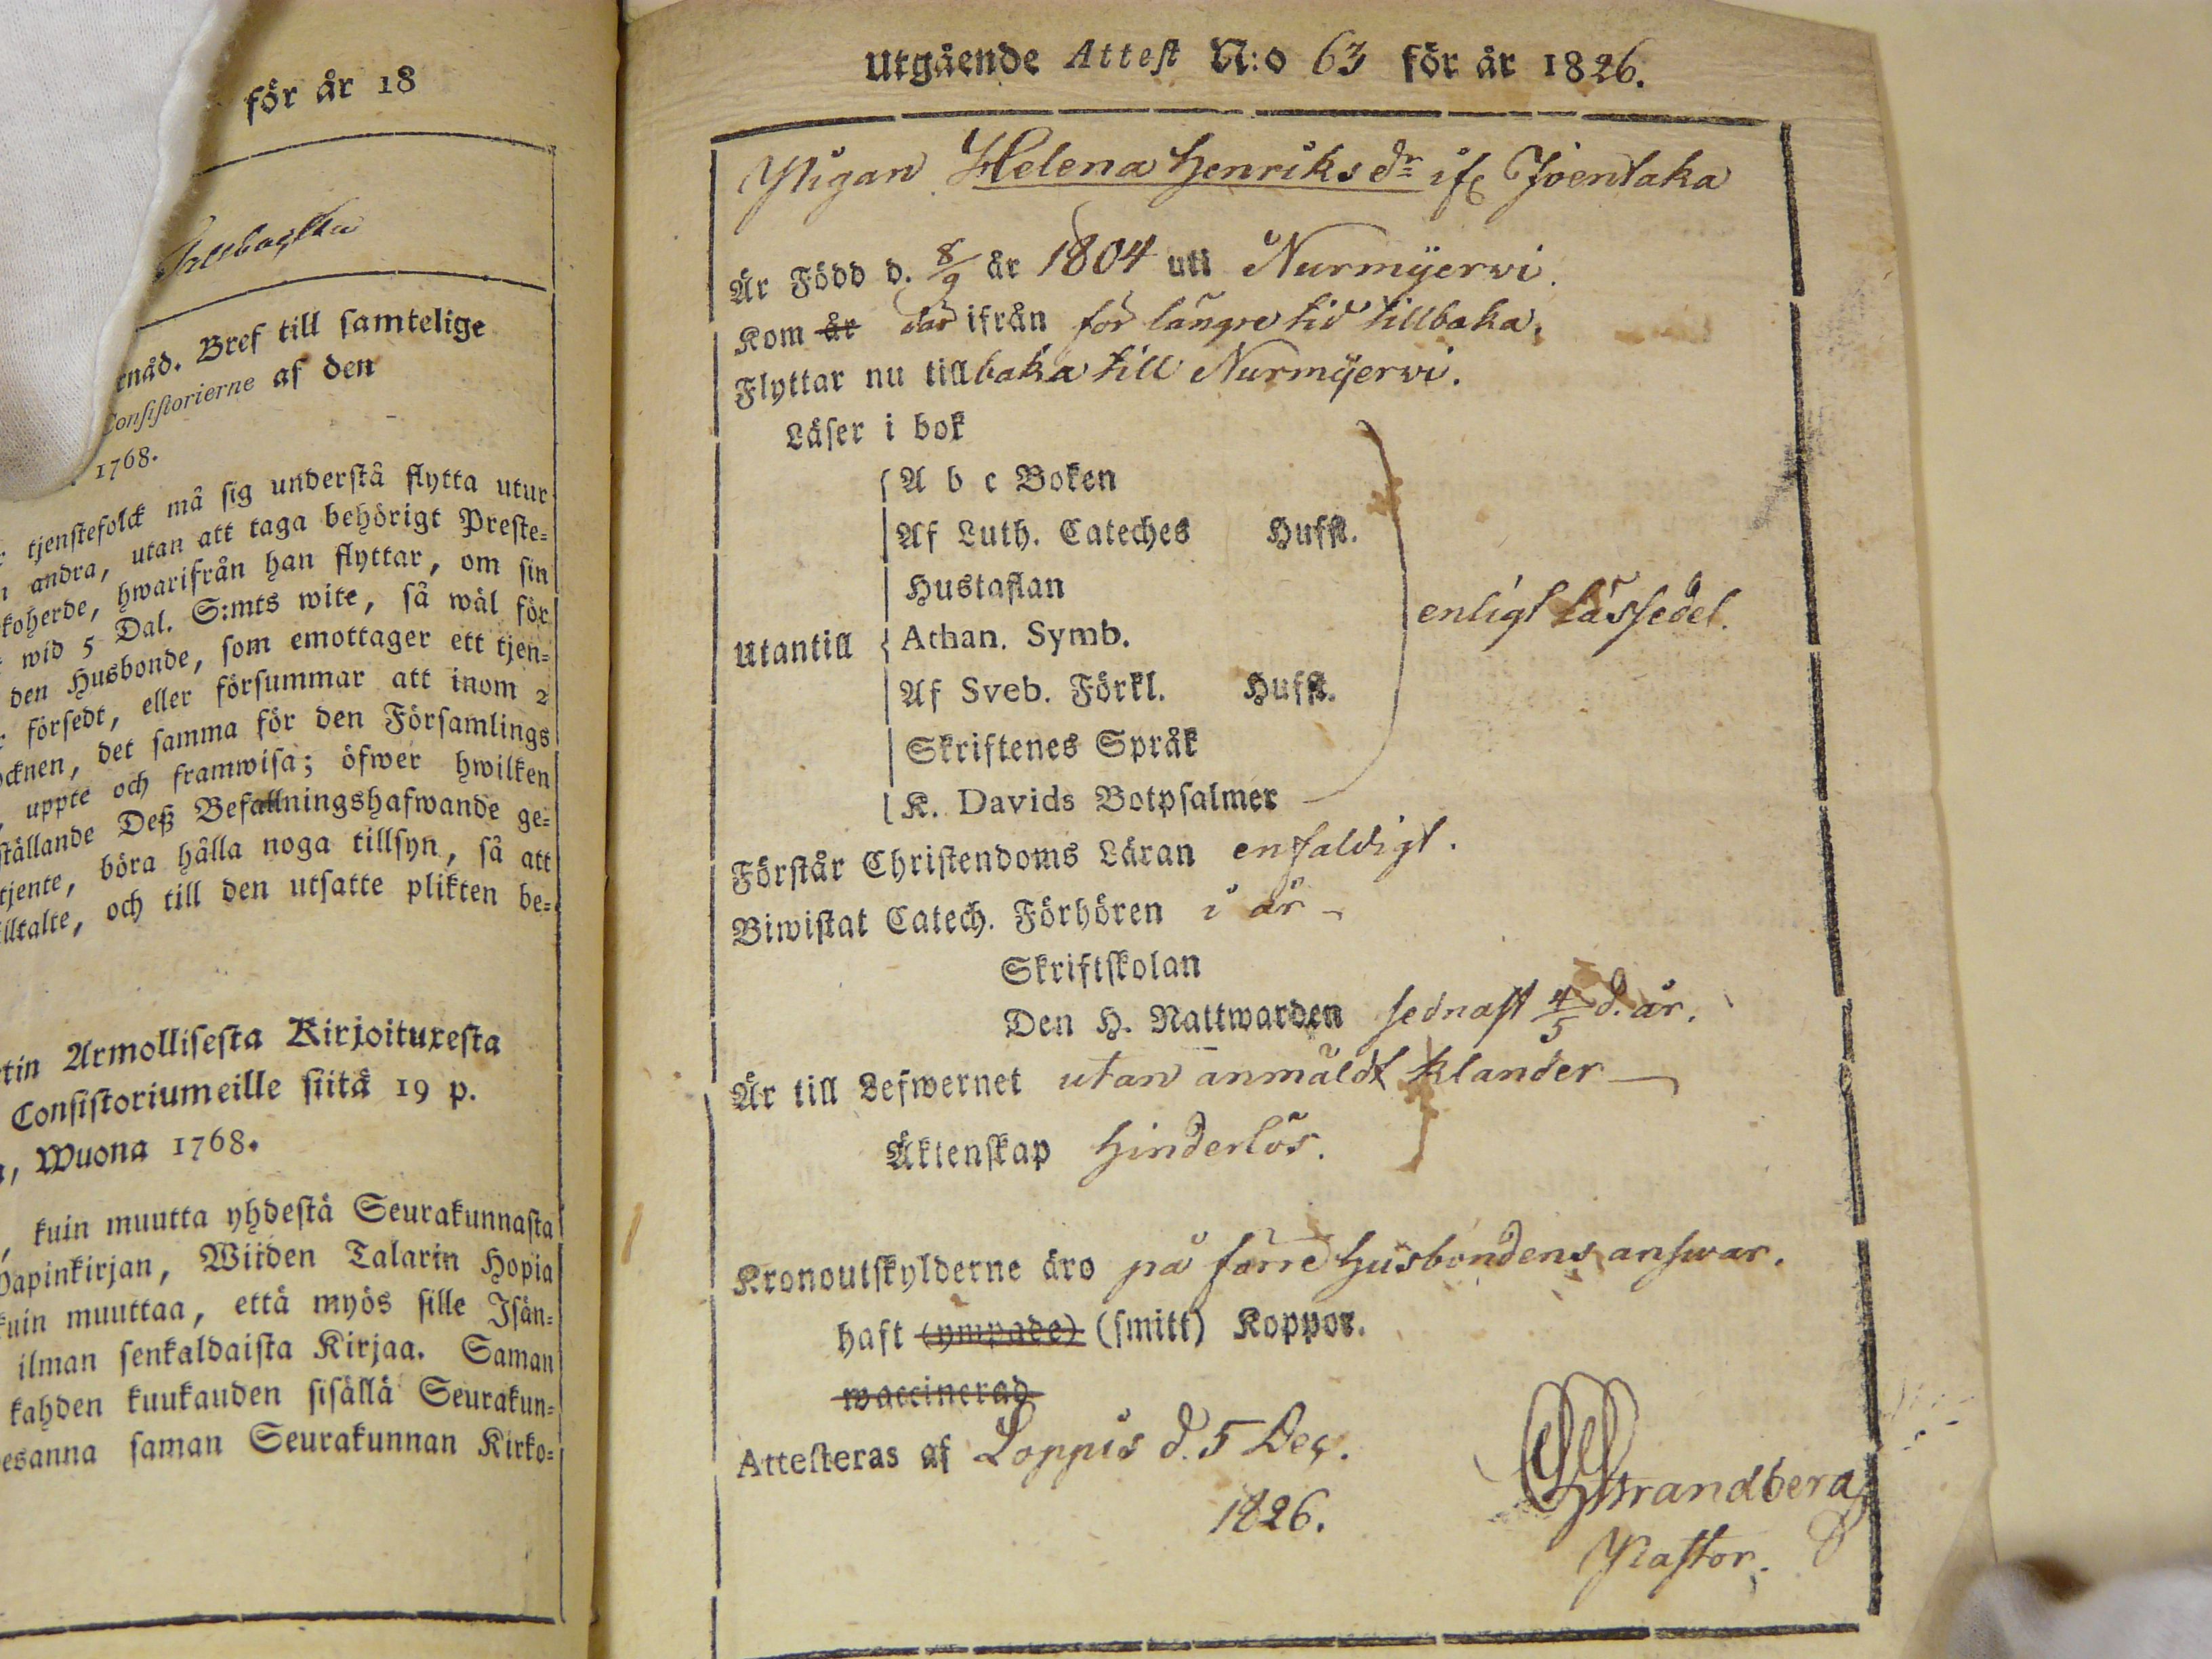 för år 18
Bref till ſamtelige
Conſiſtorierne af den
1768.
tjenſtefolck må ſig underſtå flytta utur
andra, utan att taga behörigt Preſte⸗
koherde, hwarifrån han flyttar, om ſin
wid 5 Dal. S:mts wite, ſå wäl för
den Husbonde, ſom emottager ett tjen⸗
förſedt, eller förſummar att inom 2
ocknen, det ſamma för den Förſamlings
uppte och framwiſa; öfwer hwilken
ſtällande Deß Befallningshafwande ge⸗
tjente, böra hålla noga tillſyn, ſå att
illtalte, och till den utſatte plikten be⸗
tin Armolliſeſta Kirjoituxeſta
Conſiſtoriumeille ſiitä 19 p.
Wuona 1768.
, kuin muutta yhdeſtä Seurakunnaſta
Papinkirjan, Wiiden Talarin Hopia
kuin muuttaa, että myös ſille Iſän⸗
ilman ſenkaldaiſta Kirjaa. Saman
kahden kuukauden ſiſällä Seurakun⸗
esanna ſaman Seurakunnan Kirko⸗
Utgående Atteſt N:o 63 för år 1826.
Pigan Helena Henriksdr ifr Joentaka
Är Född d. 8/9 år 1804 uti Nurmijerwi.
Kom år där ifrån för längre tid tillbaka.
Flyttar nu tillbaka till Nurmijerwi.
Läſer i bok
A b c Boken
Af Luth. Cateches Hufſt.
Hustaflan
Utantill Athan. Symb. enligt Läsſedel.
Af Sveb. Förkl. Hufſt.
Skriftenes Språk
K. Davids Botpſalmer
Förſtår Chriſtendoms Läran enfaldigt.
Biwiſtat Catech. Förhören i år
Skriftſkolan
Den H. Nattwarden ſednaſt 4/5 d. år.
Är till Lefwernet utan anmäldt klander
Äktenſkap hinderlös.
Kronoutſkylderne äro på förre Husbondens anſwar.
haft (ympade) (ſmitt) Koppor.
waccinerad
Atteſteras af Loppis d. 5 Dec.
1826.
Strandberg
Paſtor.